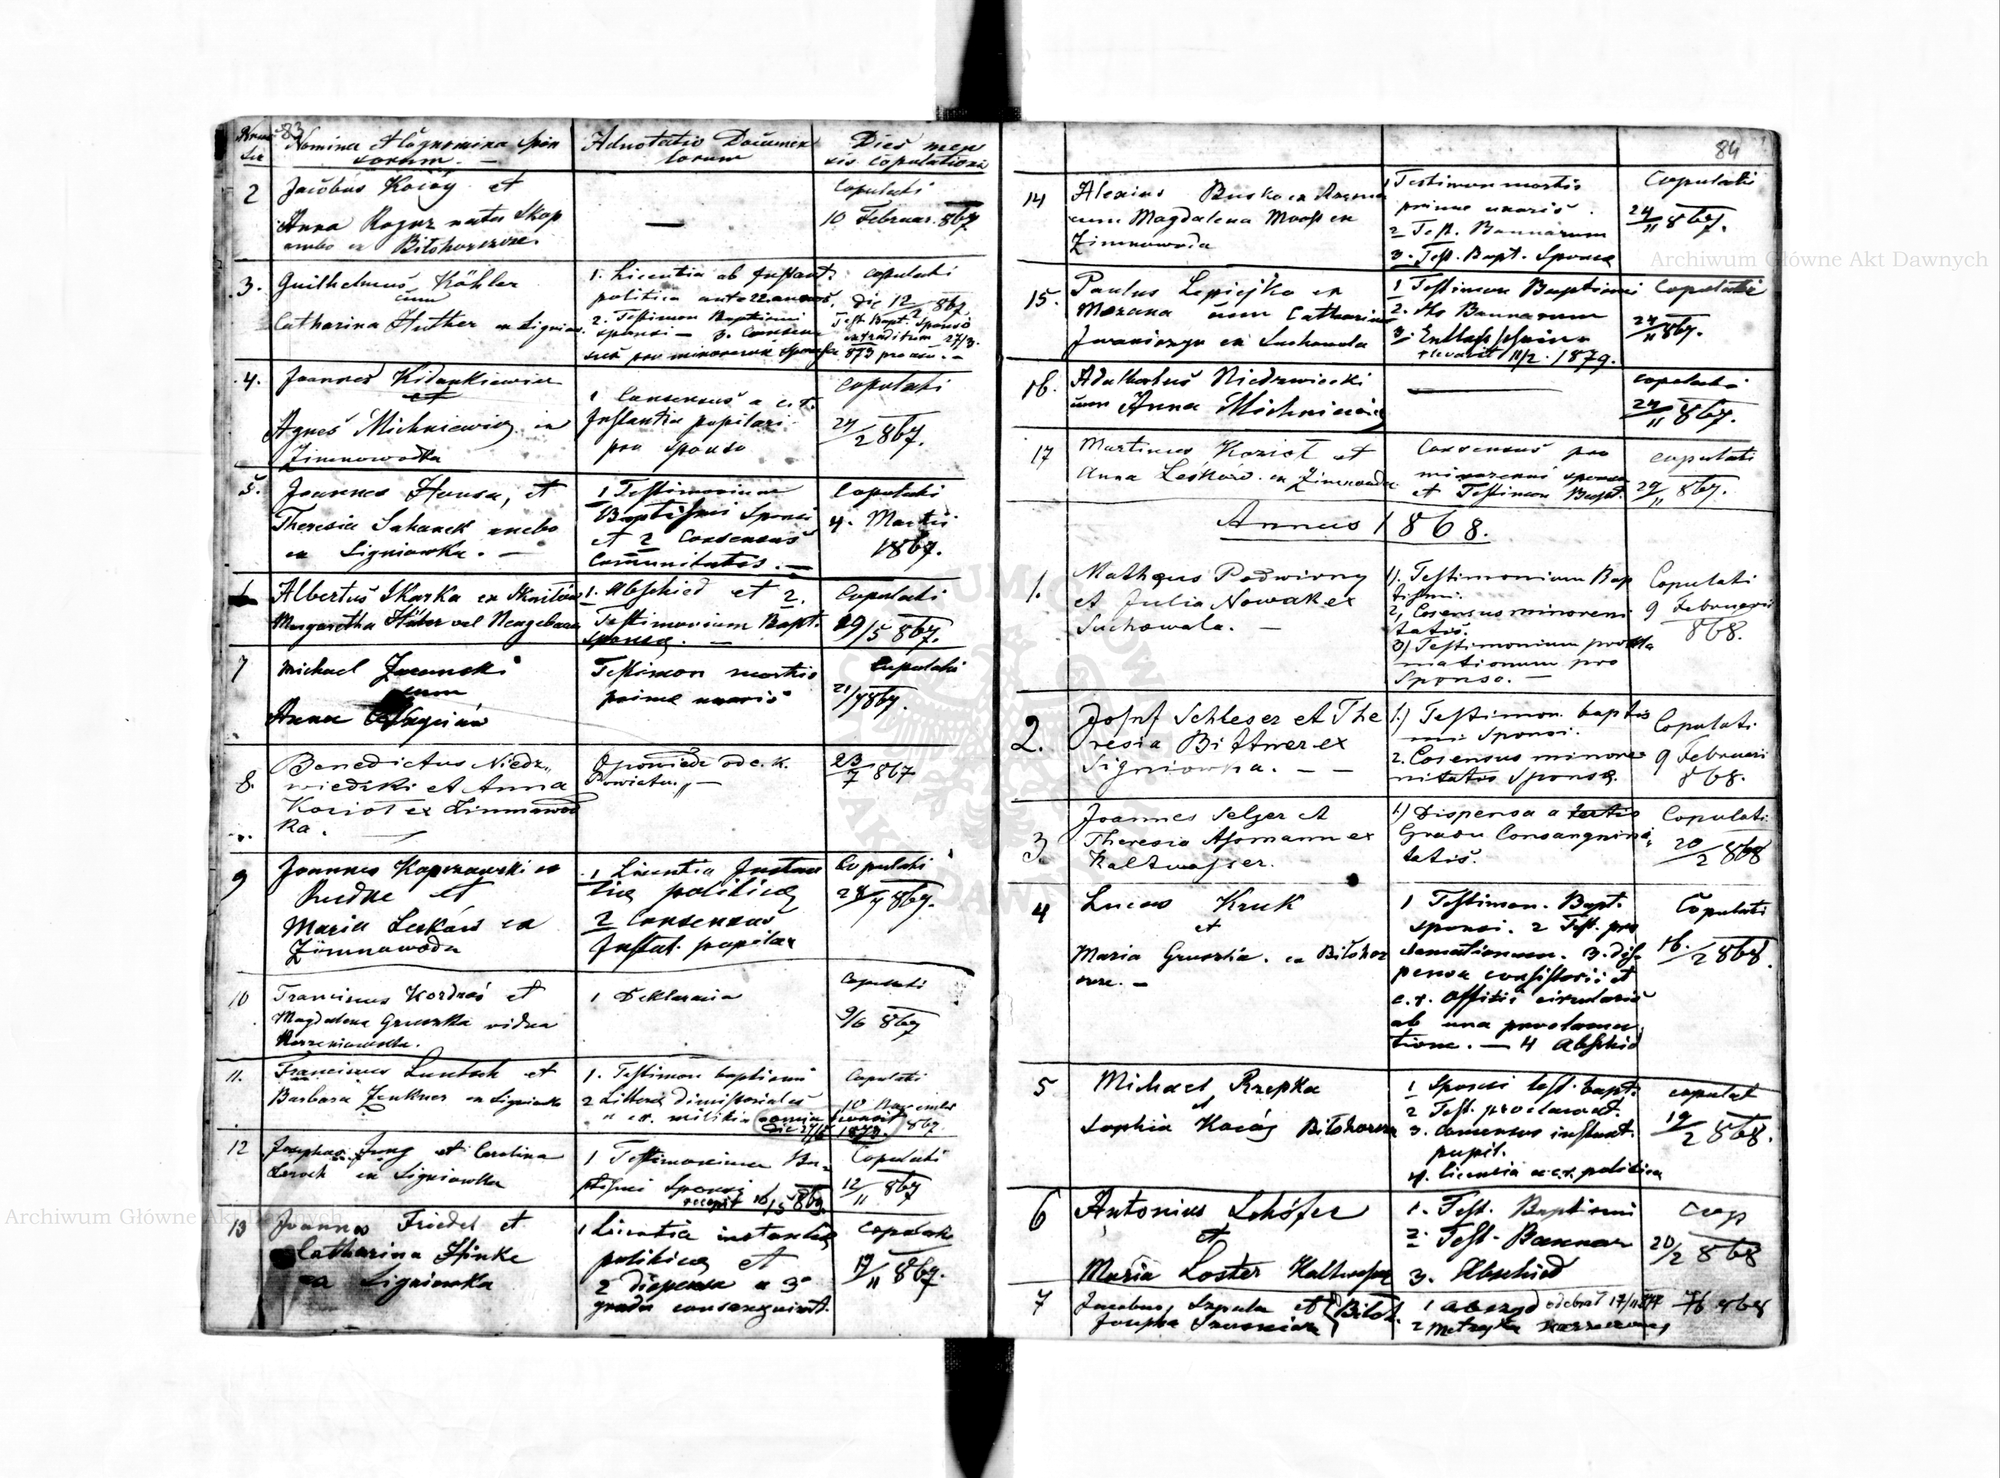 83
Nomina & Cognomina Spon
sorum. —
Adnotatio Documen
torum
Dies men
sis copulationis
2
Jacobus Kociog et
Anna Rogoz nata Skop
ambo ex
—
Copulati
10 Februar. 867
3.
Guilhelmus Köhler
cum
Catharina Huther ex
1. Licentia ab Instant.
politica
2. Testimon Baptismi
sponsi — 3. Consens
copulati
die 12/2 867.
Test. Bapt. Sponso
27/3.
873
4.
Joannes Kidankiewicz
et
Agnes Michniewicz ex
Zimnowodka
1 Consensus a c. r.
Instantia pupilari
pro sponso
Copulati
24/2 867.
5.
Joannes Hausa, et
Theresia Sahanek ambo
ex Signiowka. —
1 Testimonium
Baptismi Sponsi
et 2 Consensus
Communitatis. —
Copulati
4. Martii
1867.
6
Albertus Skarka ex
Margaretha Hüber vel
1. Abschied et 2.
Testimonium Bapt.
Sponsa. —
Copulati
29/5 867.
7
Michael
cum
Anna
Testimon mortis
prime uxoris
Copulati
21/7 867.
8.
Benedictus Niedz„
wiedzki et Anna
Koziol ex Zimnawod
ka.
Powiatu„ —
23/7 867
9
Joannes Kaprzawski ex
Rudne et
Maria Leskow ex
Zimnawoda
1 Licentia Instan
tia politica
2 Consensus
Instat. pupilar
Copulati
28/7 867.
10
Franciscus Kozdras et
Magdalena Gruszka vidua
1 Deklaracia
Copulati
9/6 867
11.
Franciscus Luntsch et
Barbara Zenkner ex Signiowka
1. Testimon baptismi
2 Littera dimissoriales
a cr. militia
Copulati
10 November
867
12
Josephus Jung et Carolina
Lersch ex Signiowka
1 Testimonium Ba„
ptismi Sponsi
recepit 16/5 869
Copulati
12/11 867
13
Joannes Friedel et
Catharina Hinke
ex Signiowka
1 Licentia instantia
politica et
2 dispensa a 3°
gradu consanguinit.
Copulati
17/11 867.
84
14
Alexius Busko ex
cum Magdalena Moos ex
Zimnowoda
1 Testimon mortis
prime uxoris.
2 Test. Bannorum
3. Test. Bapt. Sponsa
Copulati
24/11 867.
15.
Paulus Lepiejko ex
Mozana cum Catharina
ex Suchowola
1 Testimon Baptismi
2. Bannorum
3.
11/2. 1879.
Copulati
24/11 867.
16.
Adalbertus Niedzwiecki
cum Anna Michniewicz
—
copulati
24/11 867.
17
Martinus Koziol et
Anna Leskow. ex Zimnowoda
Consensus pro
minorenni sponsa
et Testimon Bapt.
copulati
29/11 867.
Annus 1868.
1.
Matheus Podwirny
et Julia Nowak ex
Suchowola. —
1). Testimonium Bap
tismi.
2, Consensus minoreni
tatis.
3) Testimonium prokla
mationum pro
Sponso. —
Copulati
9 Februarii
868.
2.
Josef Schleser et The
resia Bittner ex
Signiowka. — —
1.) Testimon. baptis
mi Sponsi.
2. Consensus minore
nitatis Sponsa.
Copulati
9 Februari
868.
3.
Joannes Selzer et
Theresia Assmann ex
Kaltwasser.
1.) Dispensa a tertio
Gradu Consanguini„
tatis.
Copulati
20/2 868
4
Lucas Kruk
et
Maria Gruszka. ex Bilohor
1 Testimon. Bapt.
sponsi. 2 Test. pro
clamationum. 3. dis
pensa consistorii et
c. r. Offitii circularis
ab una proclama
tione. — 4 Abschid
Copulati
16./2 868.
5
Michael Rzepka
et
Sophia Kociog
1 Sponsi test. bapt.
2 Test. proclamat.
3. consensus instant.
pupil.
4. licencia a c. r. politica
copulat
19/2 868.
6
Antonius Lehófer
et
Maria Loster Kaltwasser
1. Test. Baptismi
2. Test. Bannor
3. Abschied
Cop
20/2 868
7
Jacobus Szpula et
Josepha
Biloh.
1 Abszyd odebrał
2 Metryka
868
Archiwum Główne Akt Dawnych
Archiwum Główne Akt Dawnych